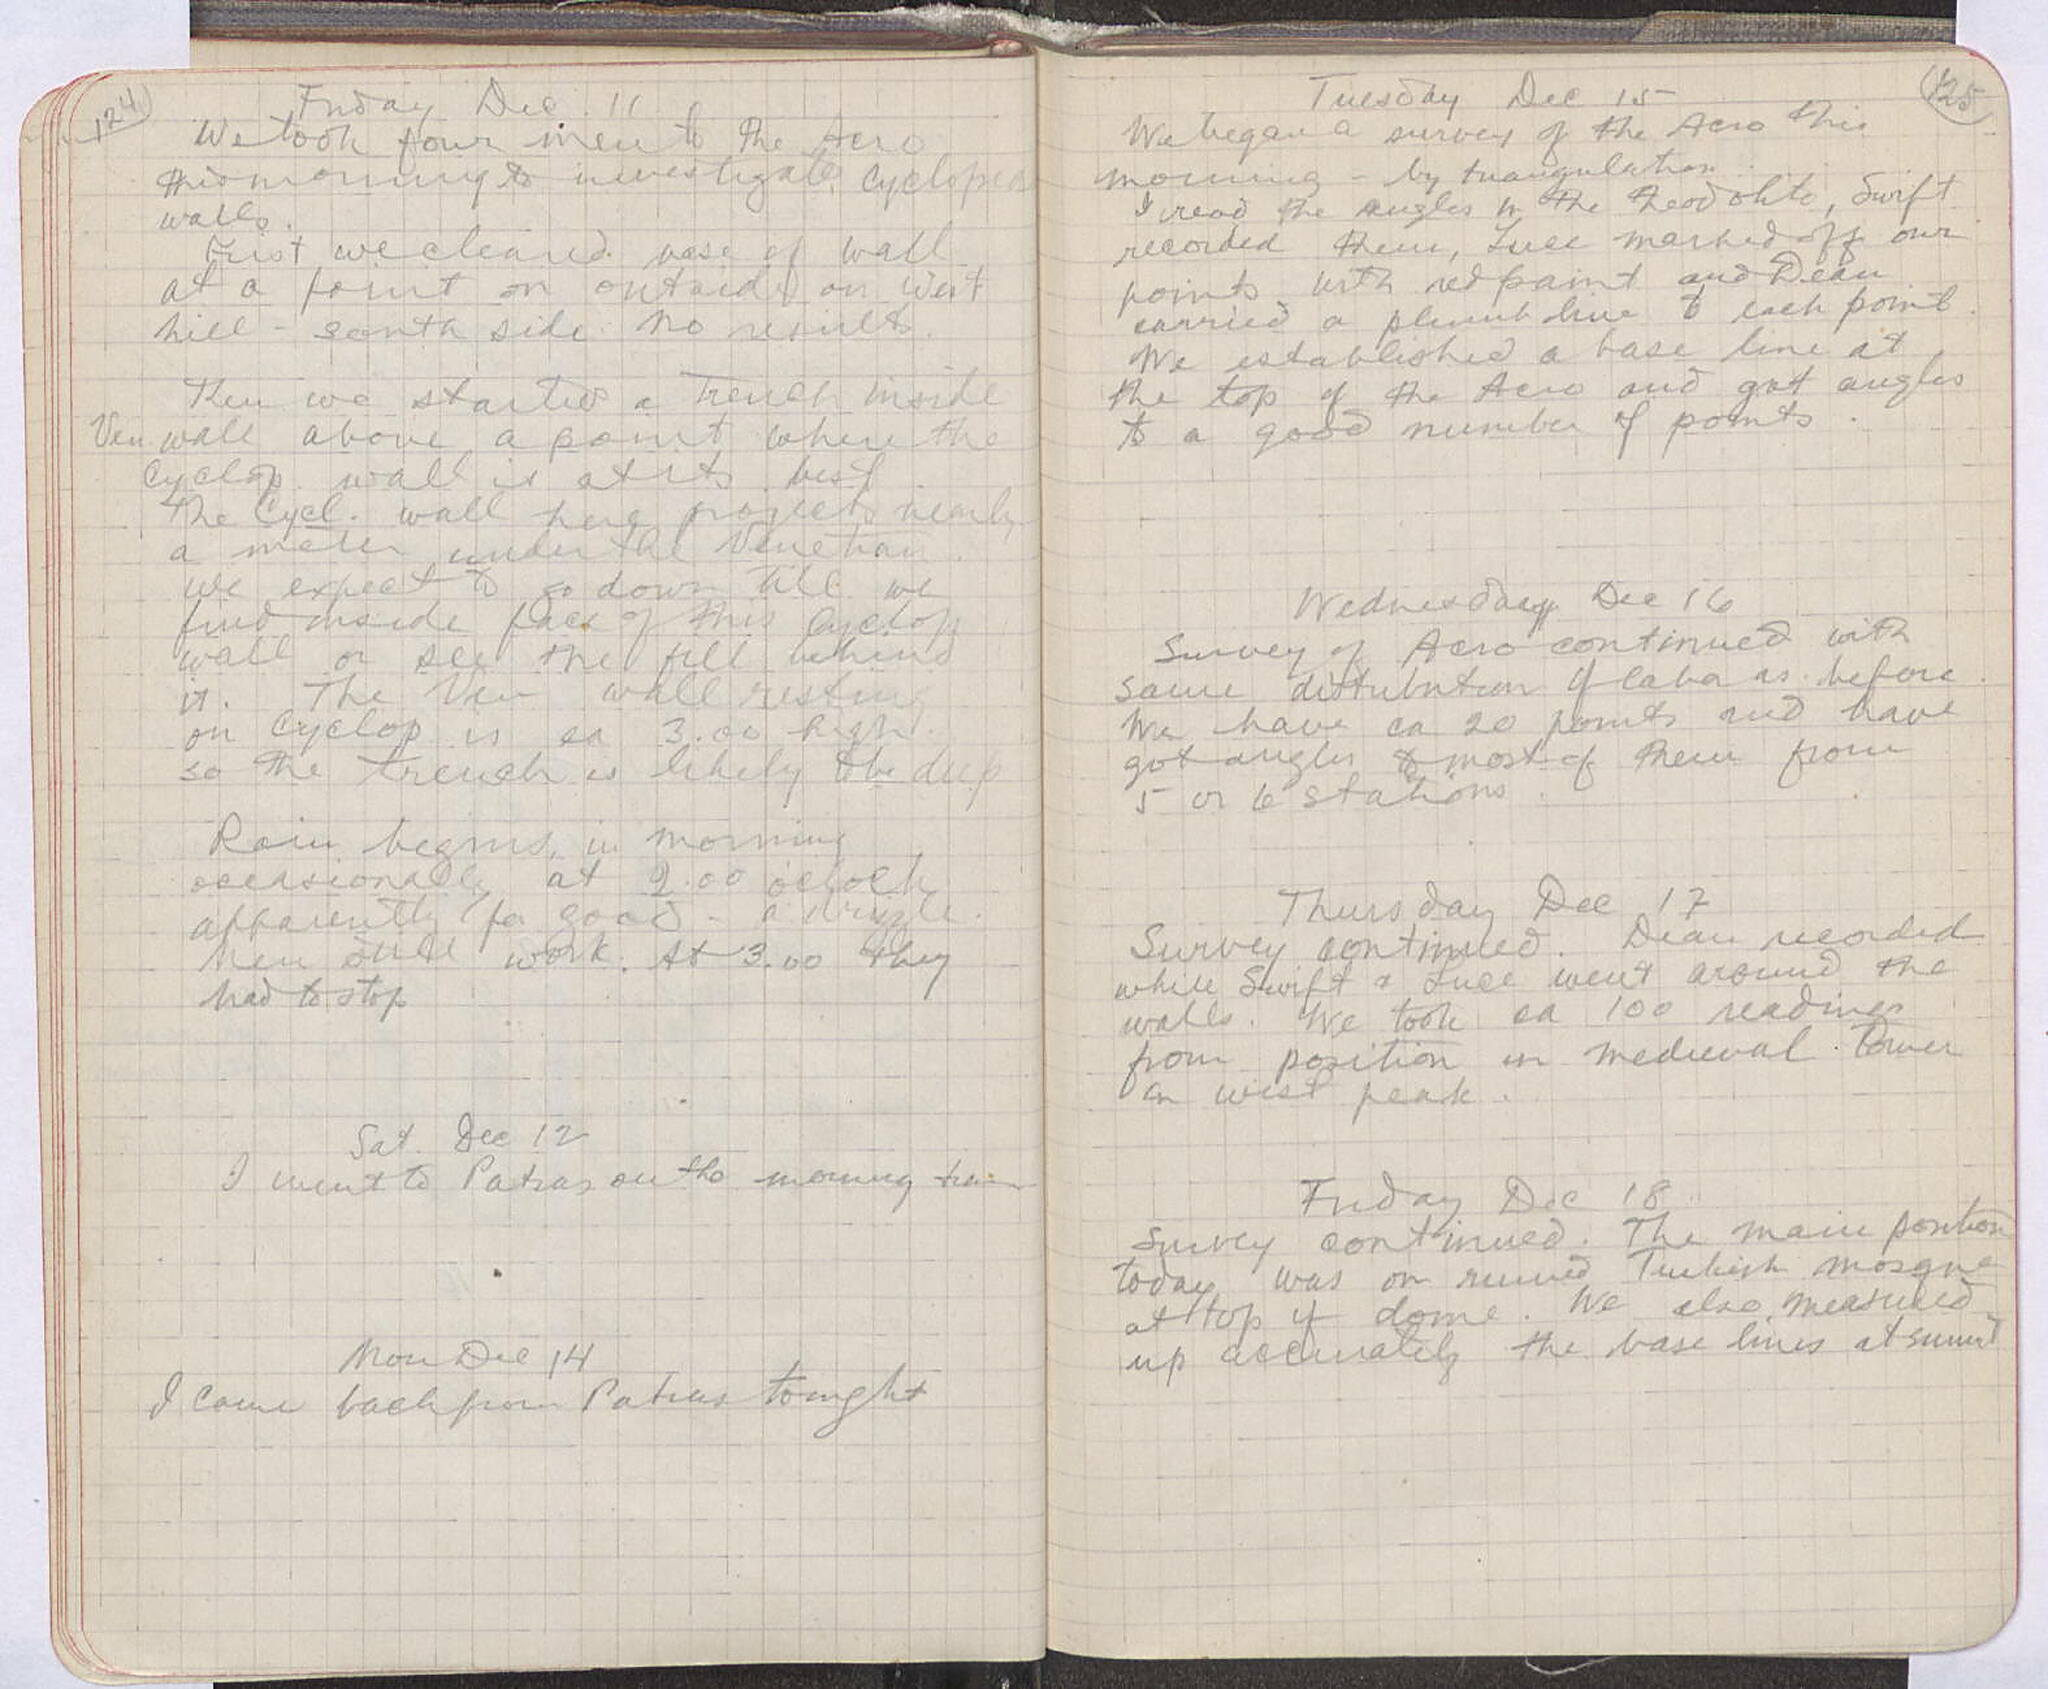 124
Friday Dec. 11
We took four men to the Acro
this morning to investigate Cyclopean
walls.
First we cleared base of wall
at a point on outside on West
hill - south side. No results.
Then we started a trench inside
Ven wall above a point where the
Cyclop. wall is at its best.
The Cycl. wall here projects nearly
a meter under the Venetian.
We expect to go down till we
find inside face of this Cyclop
wall or see the fill behind
it. The Ven wall resting
on Cyclop is ca 3.00 high.
so the trench is likely to be deep
Rain begins in morning
occasionally at 2.00 o'clock
apparently for good - a drizzle.
Men still work. At 3.00 they
had to stop
Sat. Dec 12
I went to Patras on the morning train
Mon Dec 14
I came back from Patras tonight
125
Tuesday Dec 15
We began a survey of the Acro this
morning - by triangulation.
I read the angles in the theodolite, Swift
recorded them, Luce marked off our
points with red paint and Dean
carried a plumb line to each point.
We established a base line at
the top of the Acro and got angles
to a good number of points.
Wednesday Dec 16
Survey of Acro continued with
same distribution of labor as before.
We have ca 20 points and have
got angles to most of them from
5 or 6 stations.
Thursday Dec 17
Survey continued. Dean recorded
while Swift & Luce went around the
walls. We took ca 100 readings
from position in medieval tower
on west peak.
Friday Dec 18
Survey continued. The main position
today was on ruined Turkish mosque
at top of dome. We also measured
up accurately the base lines at summit